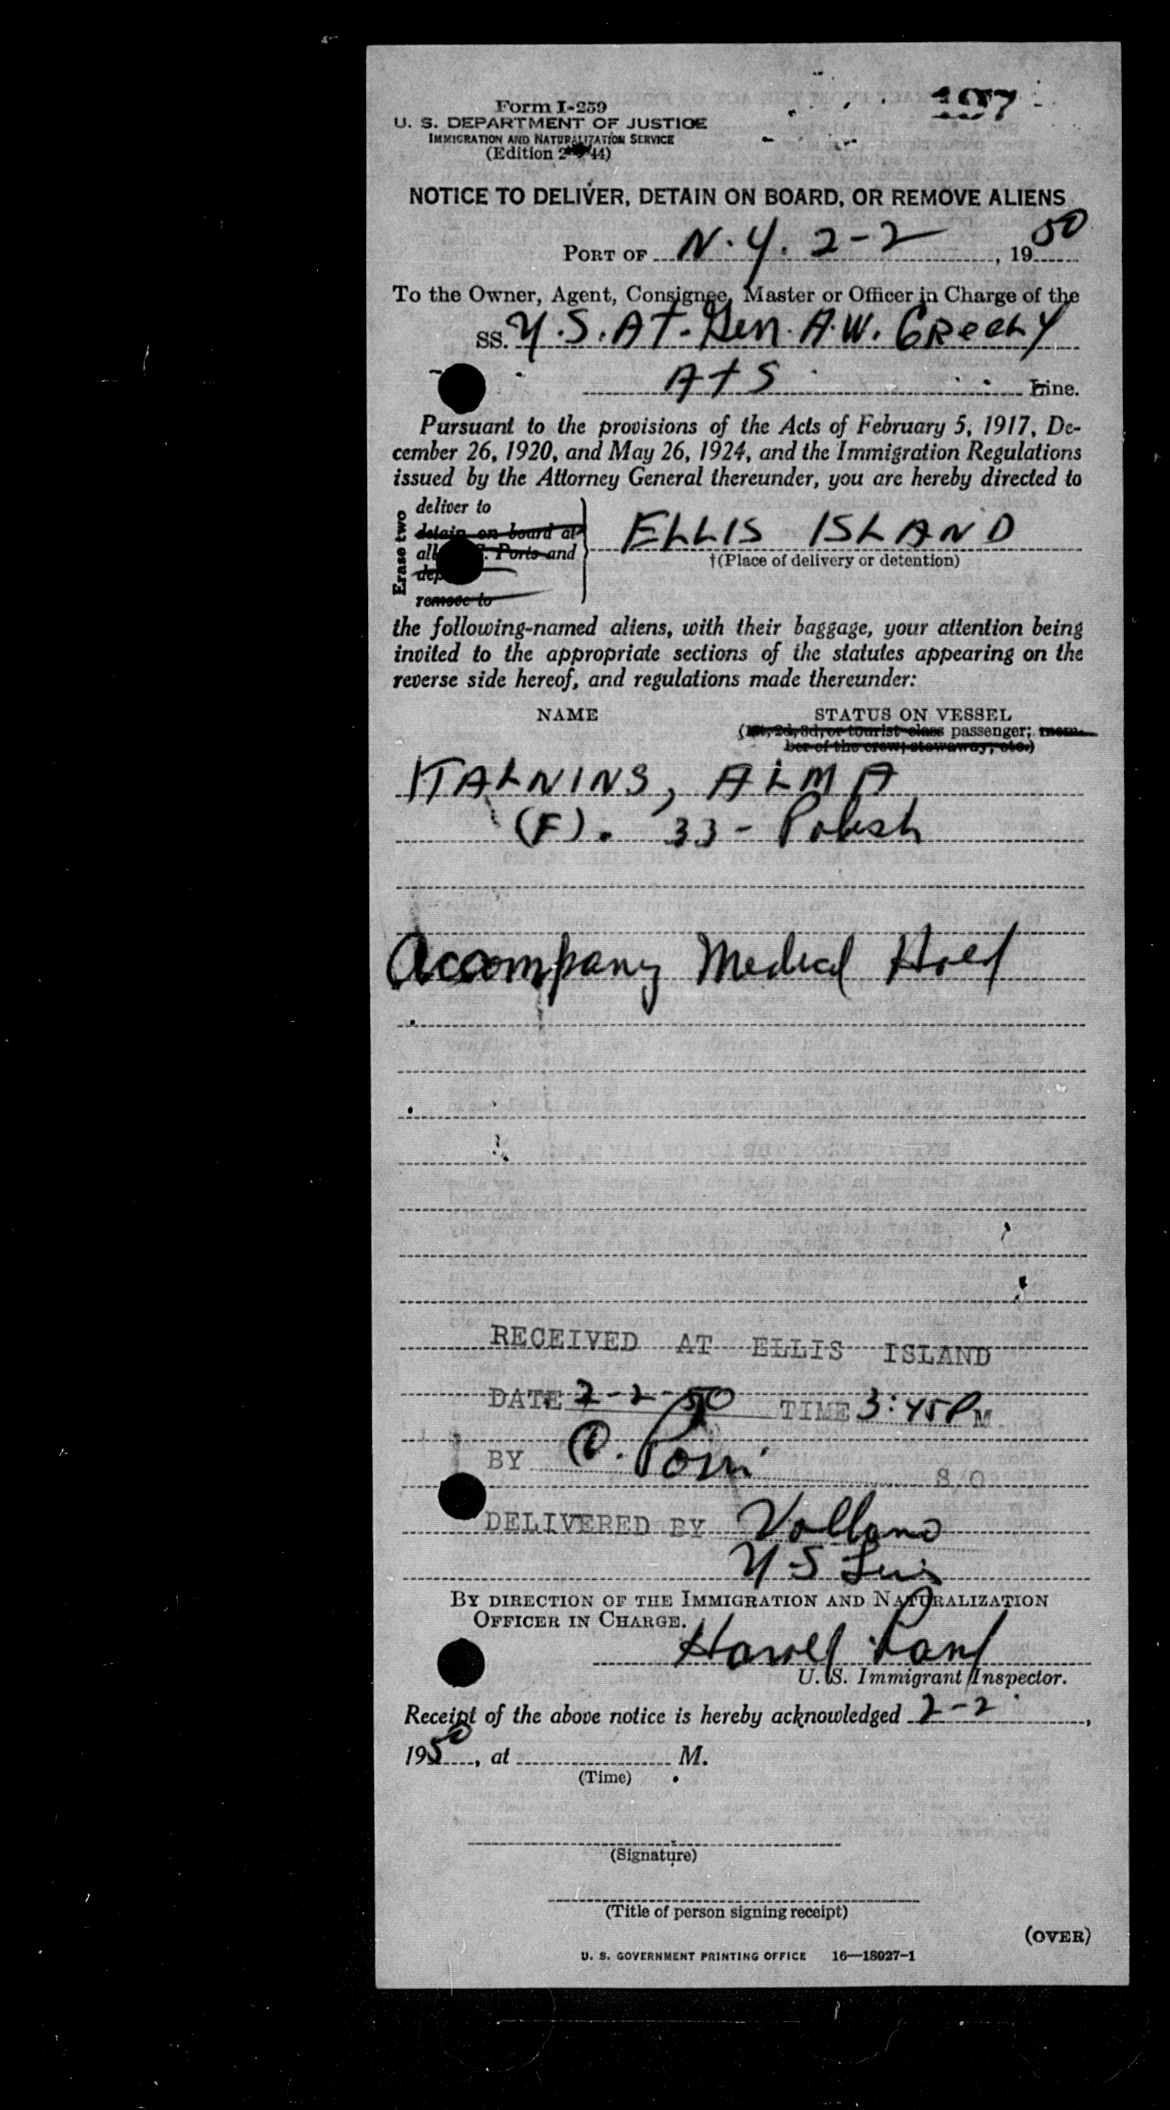 197
Form I-259
U. S. DEPARTMENT OF JUSTICE
IMMIGRATION AND NATURALIZATION SERVICE
(Edition 44)
NOTICE TO DELIVER, DETAIN ON BOARD, OR REMOVE ALIENS
PORT OF N.Y. 2-2, 1950
To the Owner, Agent, Consignee, Master or Officer in Charge of the
SS. U.S.AT. Gen. A.W. GREELY
ATS Line.
Pursuant to the provisions of the Acts of February 5, 1917, De-
cember 26, 1920, and May 26, 1924, and the Immigration Regulations
issued by the Attorney General thereunder, you are hereby directed to
Erase two
deliver to
detain on board at
all Ports and
remove to
ELLIS ISLAND
†(Place of delivery or detention)
the following-named aliens, with their baggage, your attention being
invited to the appropriate sections of the statutes appearing on the
reverse side hereof, and regulations made thereunder:
NAME STATUS ON VESSEL
(1st, 2d, 3d, or tourist class passenger; mem-
ber of the crew; stowaway, etc.)
KALNINS, ALMA
(F). 33 - Polish
Accompany Medical Hold
RECEIVED AT ELLIS ISLAND
DATE 2-2-50 TIME 3:45P M
BY S O
DELIVERED BY Vollano
U S
BY DIRECTION OF THE IMMIGRATION AND NATURALIZATION
OFFICER IN CHARGE.
U. S. Immigrant Inspector.
Receipt of the above notice is hereby acknowledged 2-2,
1950, at M.
(Time)
(Signature)
(Title of person signing receipt)
(OVER)
U. S. GOVERNMENT PRINTING OFFICE 16—18027-1